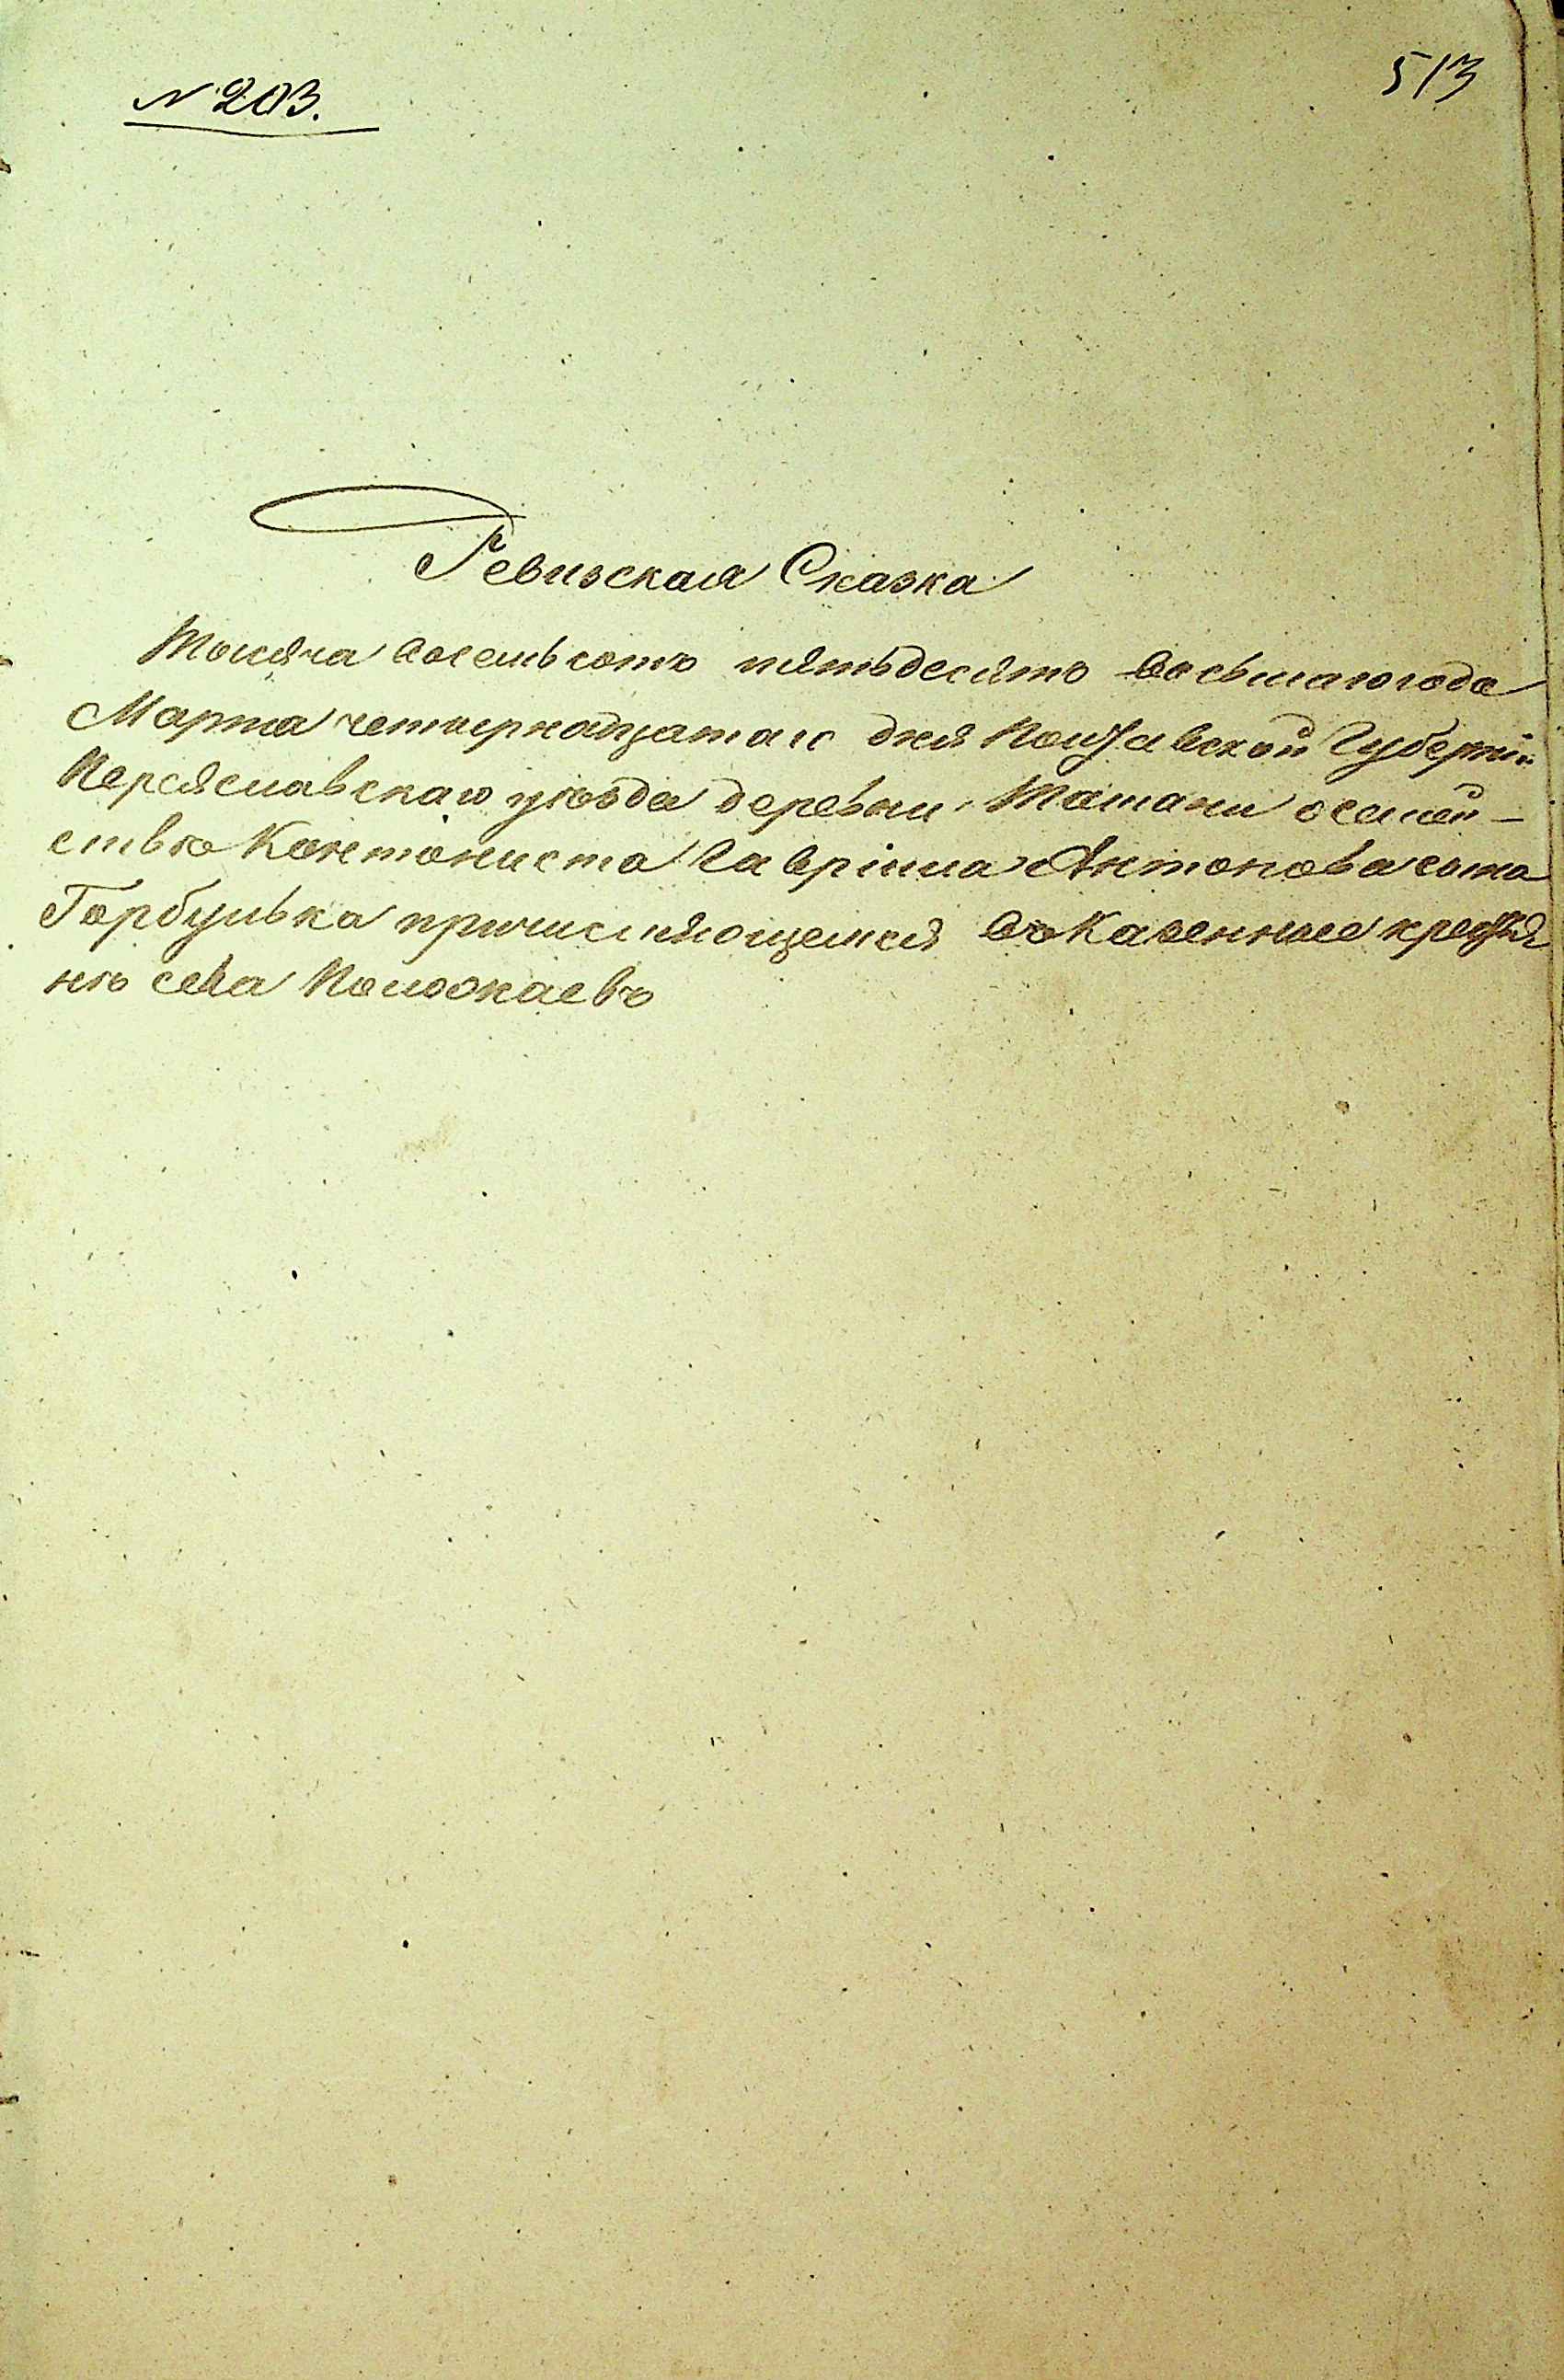 № 203.
513
Ревизская Сказка
Тысяча восемьсотъ пятьдесятъ восьмаго года
Марта четырнадцатаго дня Полтавской Губерніи
Переяславскаго уѣзда деревни осемей-
ствѣ Кантониста Гавріила Антонова сына
Горбулька причисляющемся въ Казенные крестья
нѣ села Помокаевъ